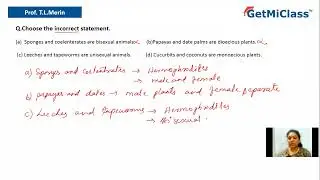 Prof. T.L.Merin
GetMiClass™
Q.Choose the incorrect statement.
(a) Sponges and coelenterates are bisexual animals (b)Papaya and date palms are dioecious plants.
(c) Leeches and tapeworms are unisexual animals. (d)Cucurbits and coconuts are monoecious plants.
a) Sponges and coelentrates → Hermophrodites
→ male and female
b) papayas and dates → male plants and female separate
c) Leeches and Tapeworms → Hermophrodites
→ Bisexual